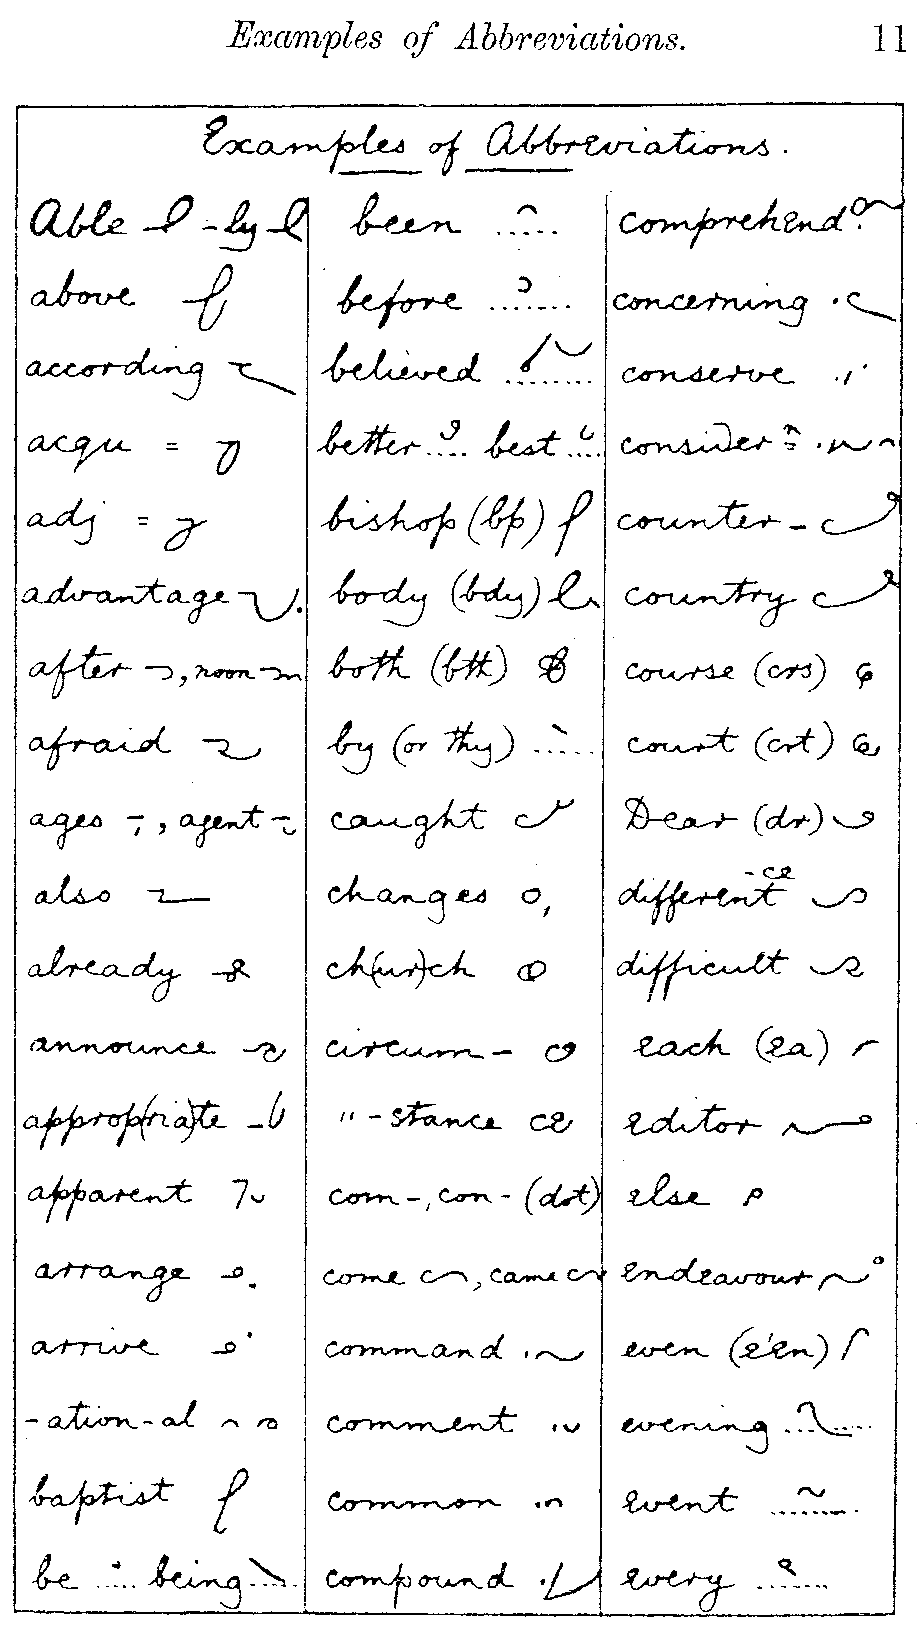 Examples of Abbreviations. 11
Examples of Abbreviations.
Able -ly
above
according
acqu =
adj =
advantage
after , noon
afraid
ages , agent
also
already
announce
approp(ria)te
apparent
arrange
arrive
-ation-al
baptist
be being
been
before
believed
better best
bishop (bp)
body (bdy)
both (bth)
by (or thy)
caught
changes
ch(ur)ch
circum-
" -stance
com-, con- (dot)
come , came
command
comment
common
compound
comprehend
concerning
conserve
consider =
counter -
country
course (crs)
court (crt)
Dear (dr)
different -ce
difficult
each (ea)
editor
else
endeavour
even (e'en)
evening
event
every